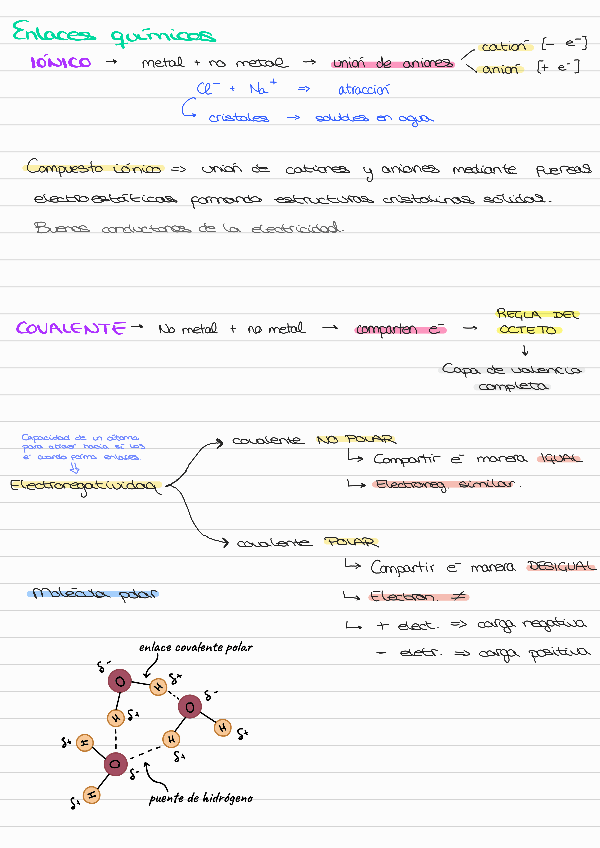 Enlaces químicos
IÓNICO → metal + no metal → unión de aniones
catión [- e⁻]
anión [+ e⁻]
Cl⁻ + Na⁺ => atracción
cristales → solubles en agua
Compuesto iónico => unión de cationes y aniones mediante fuerzas
electroestáticas formando estructuras cristalinas sólidas.
Buenos conductores de la electricidad.
COVALENTE → No metal + no metal → comparten e⁻ →
REGLA DEL
OCTETO
↓
Capa de valencia
completa
Capacidad de un átomo
para atraer hacia sí los
e⁻ cuando forma enlaces.
Electronegatividad
covalente NO POLAR
Compartir e⁻ manera IGUAL
Electroneg. similar.
covalente POLAR
Compartir e⁻ manera DESIGUAL
Electron. ≠
+ elect. => carga negativa
- eletr. => carga positiva
Molécula polar
enlace covalente polar
δ⁻
O
H
δ+
δ⁻
O
H
δ+
H
δ+
H
δ+
δ+
H
O
δ⁻
H
δ+
puente de hidrógeno